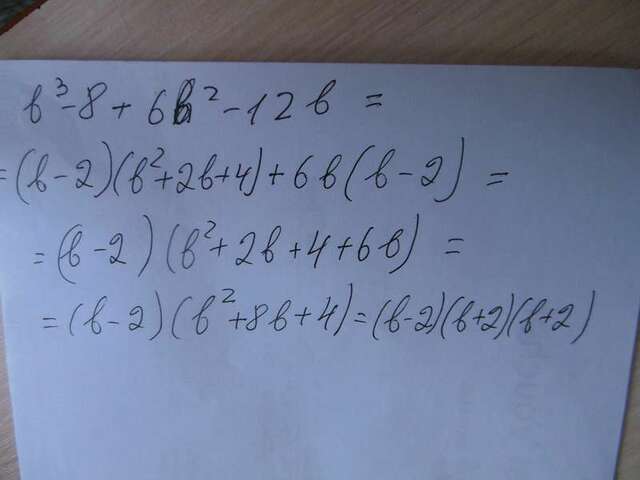 b³-8+6b²-12b=
=(b-2)(b²+2b+4)+6b(b-2)=
=(b-2)(b²+2b+4+6b)=
=(b-2)(b²+8b+4)=(b-2)(b+2)(b+2)